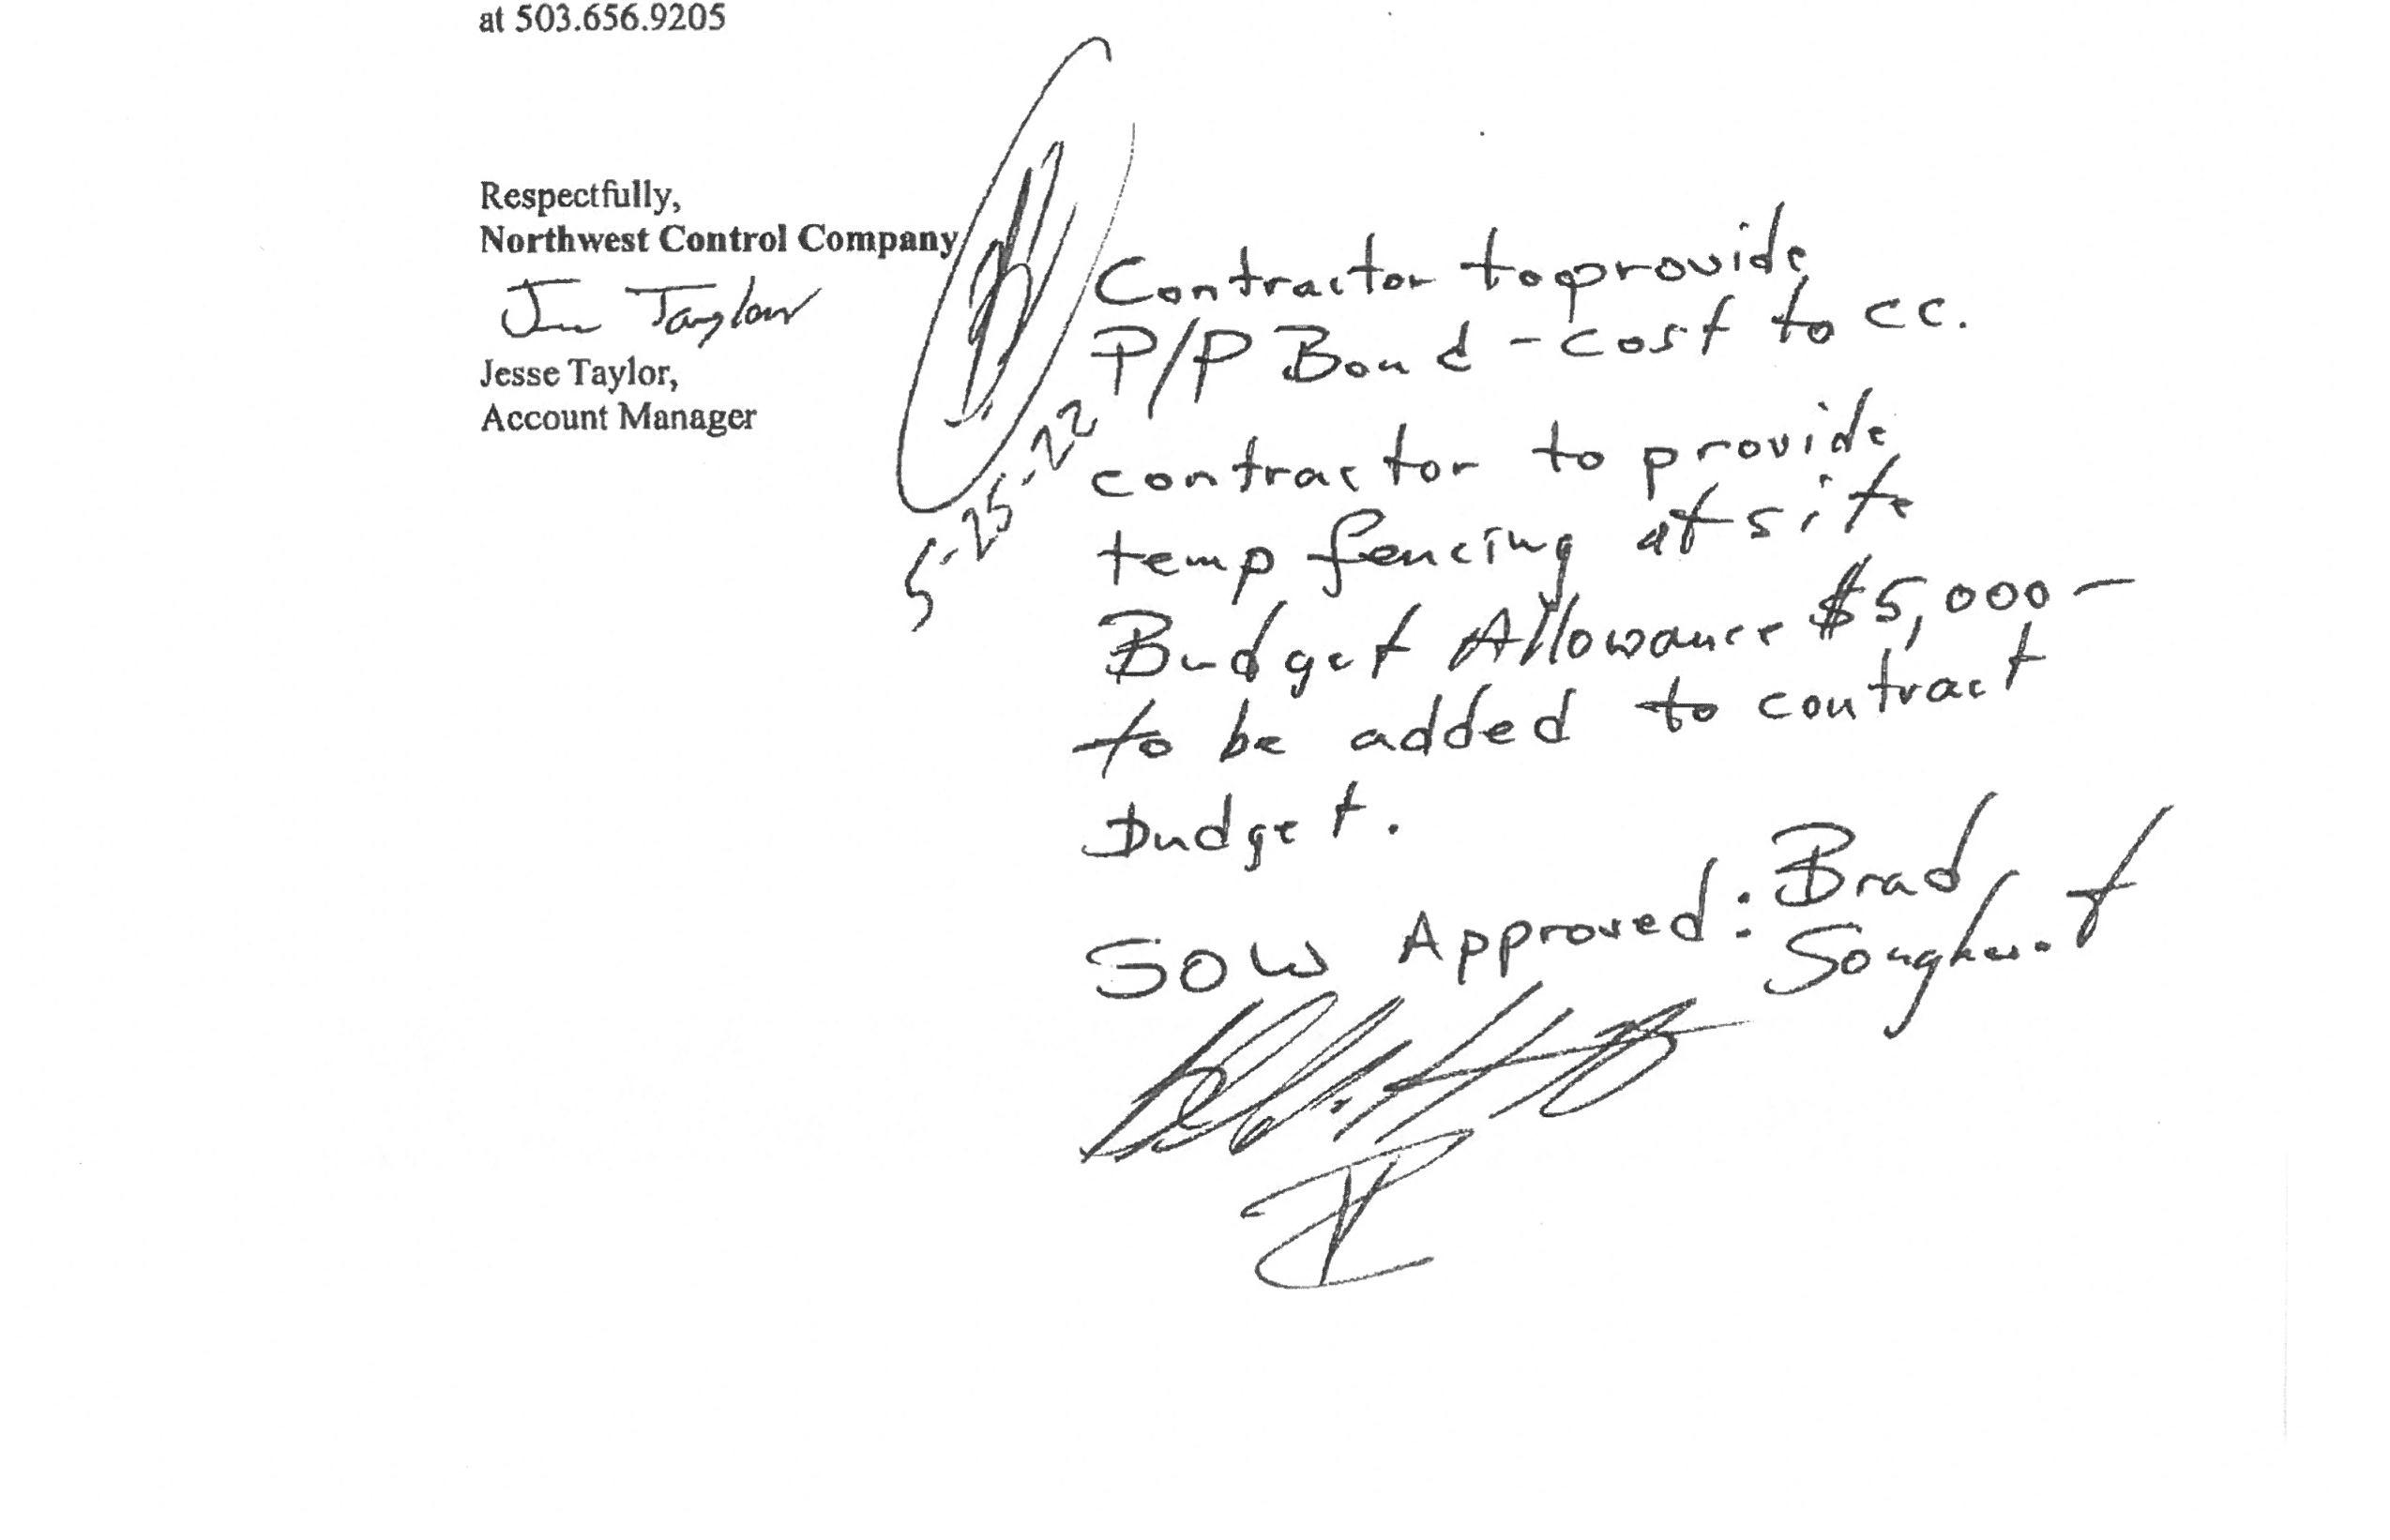 at 503.656.9205
Respectfully,
Northwest Control Company
Jesse Taylor,
Account Manager
5-25-22
Contractor to provide
P/P Bond - cost to CC.
contractor to provide
temp fencing at site
Budget Allowance $5,000-
to be added to contract
Budget.
SOW Approved: Brad